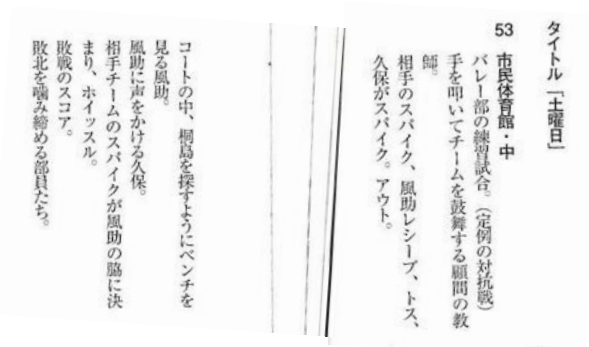 タイトル「土曜日」
53 市民体育館・中
バレー部の練習試合。（定例の対抗戦）
手を叩いてチームを鼓舞する顧問の教
師。
相手のスパイク、風助レシーブ、トス、
久保がスパイク。アウト。
コートの中、桐島を探すようにベンチを
見る風助。
風助に声をかける久保。
相手チームのスパイクが風助の脇に決
まり、ホイッスル。
敗戦のスコア。
敗北を噛み締める部員たち。